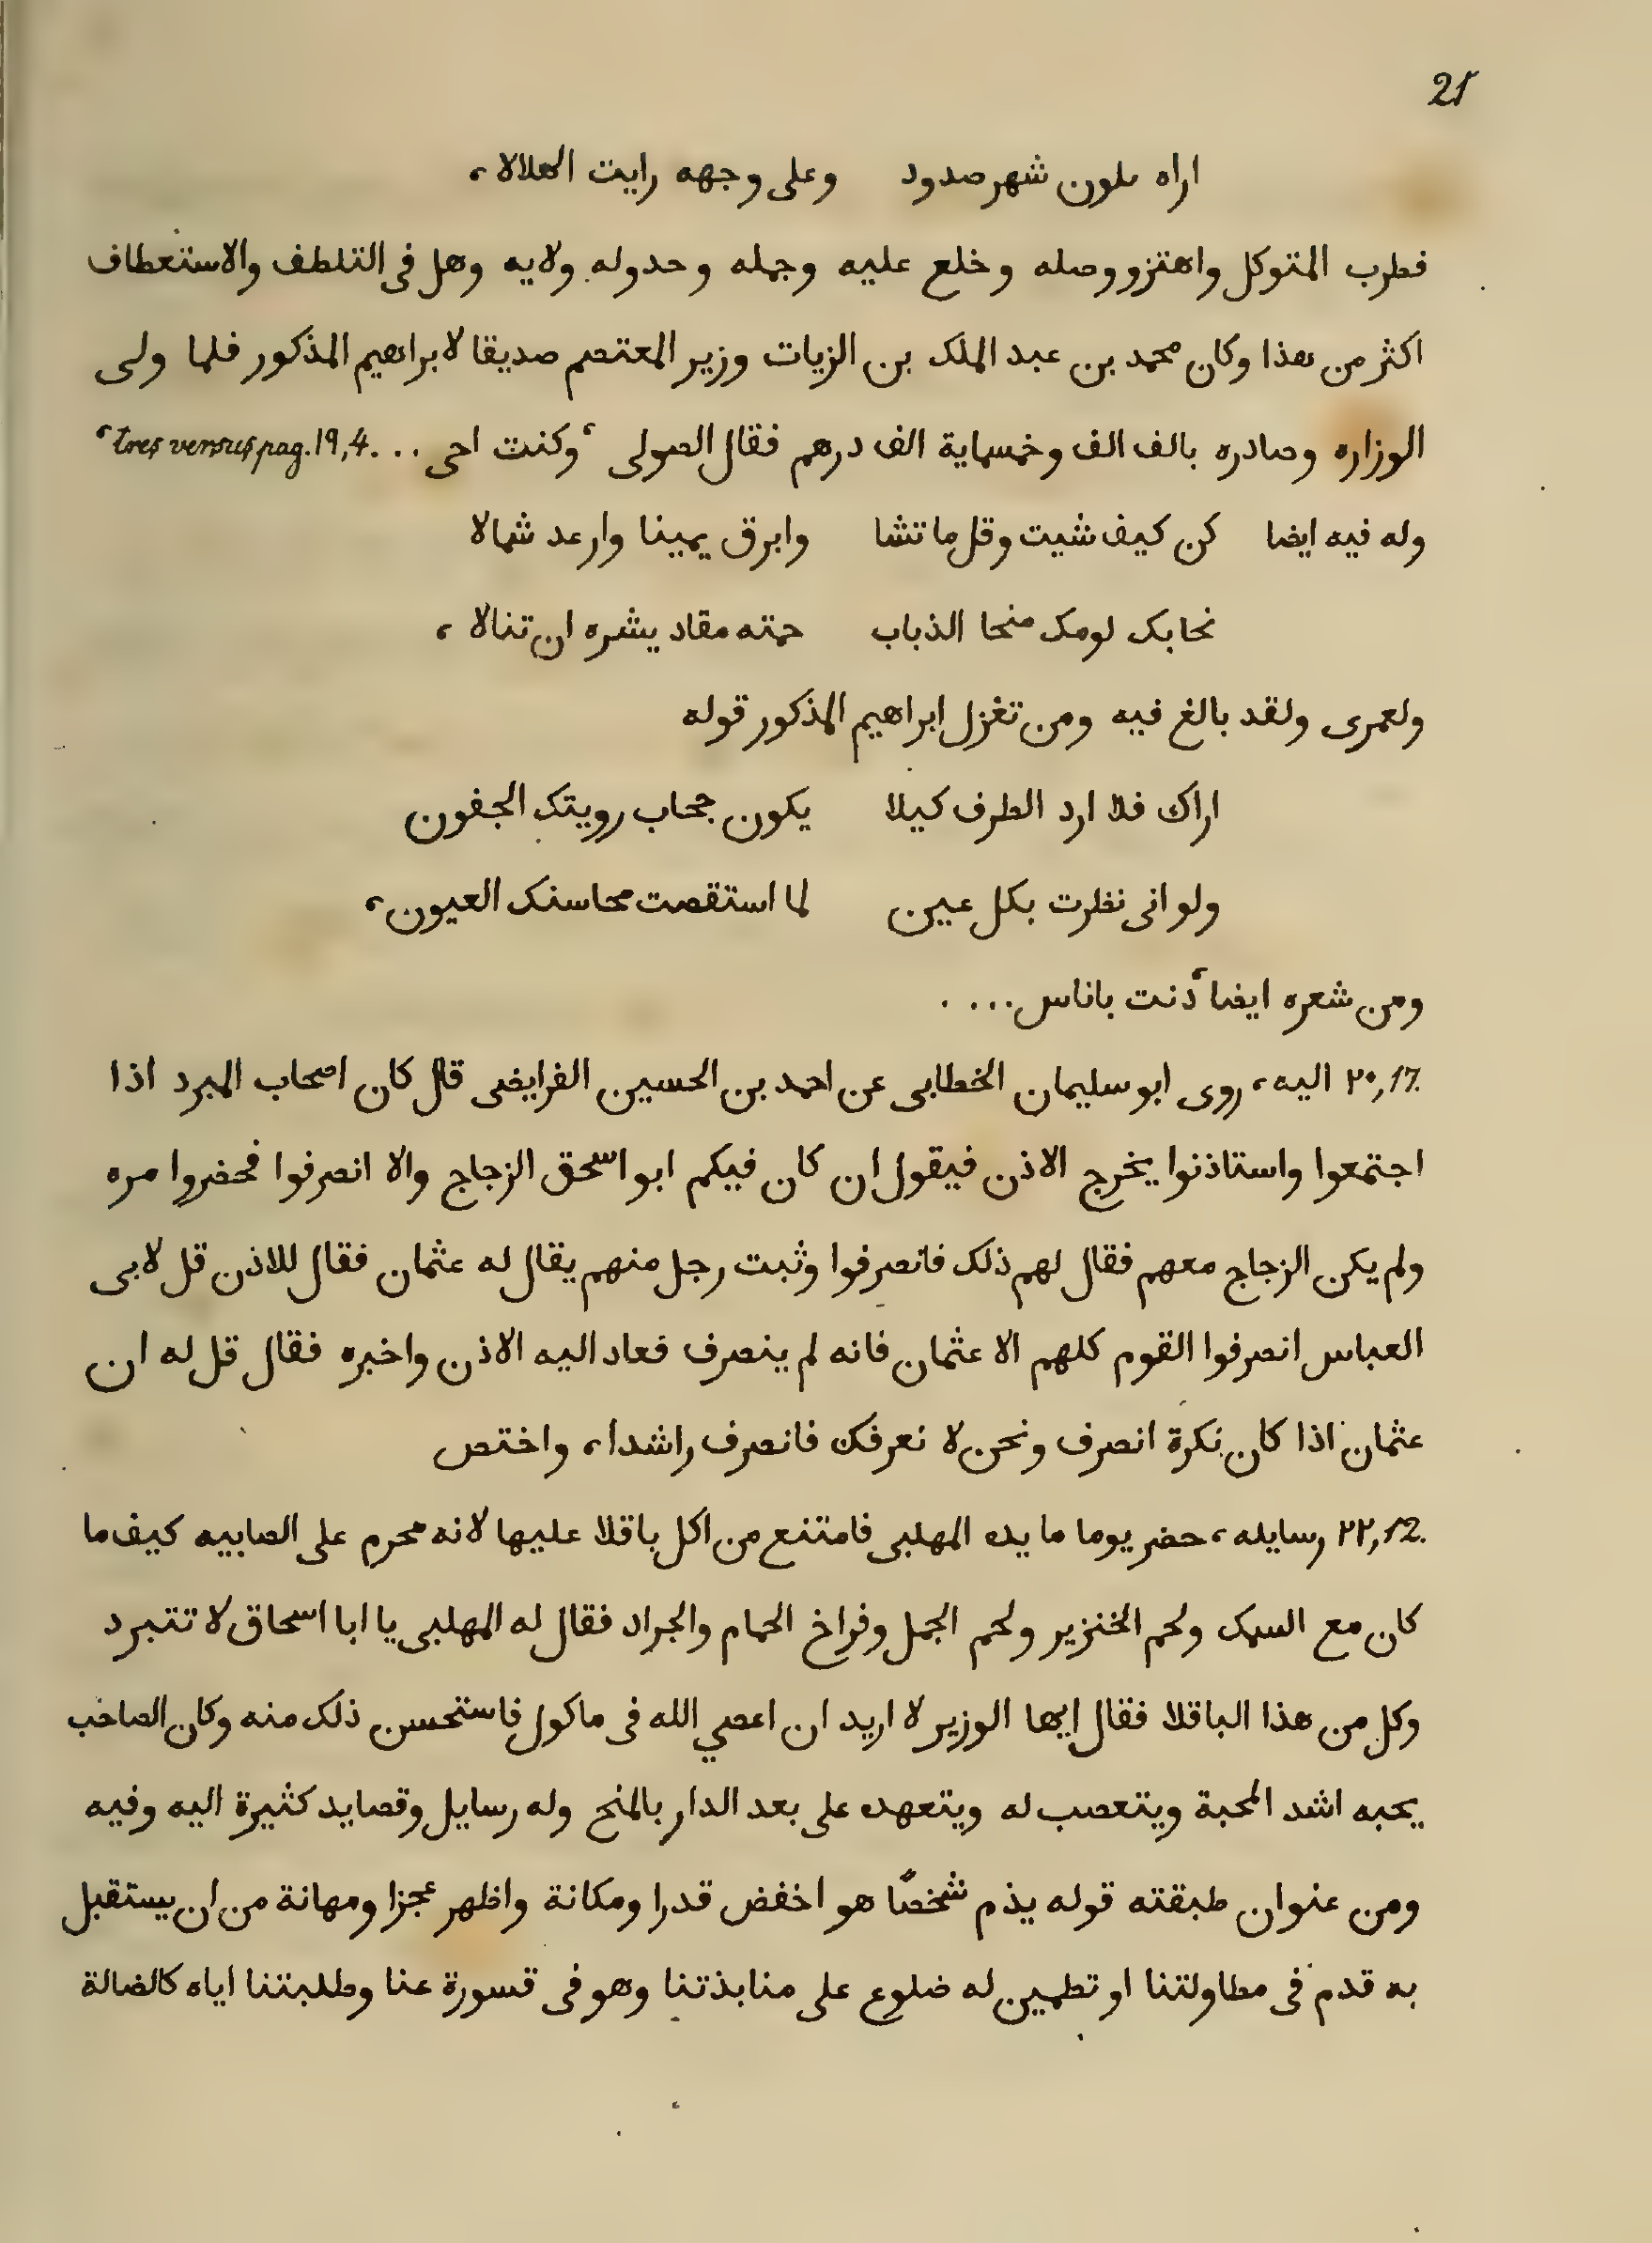 21
اراه ملون شهر صدود وعلى وجهه رايت الهلالا ،
فطرب المتوكل واهتز ووصله وخلع عليه وحمله وحدوله ولايه وهل فى التلطف والاستعطاف
اكثر من هذا وكان محمد بن عبد الملك بن الزيات وزير المعتصم صديقا لابراهيم المذكور فلما ولى
الوزاره وصادره بالف الف وخمسماية الف درهم فقال الصولى ، وكنت احى ... tres versus pag. 19,4. ،
وله فيه ايضا كن كيف شيت وقل ما تشا وابرق يمينا وارعد شمالا
نحا بك لومك منحا الذباب حمته مقاد يشره ان تنالا ،
ولعمرى ولقد بالغ فيه ومن تغزل ابراهيم المذكور قوله
اراك فلا ارد الطرف كيلا يكون حجاب رويتك الجفون
ولو انى نظرت بكل عين لما استقصت محاسنك العيون ،
ومن شعره ايضا ، دنت باناس ....
٢٠,17. اليه ، روى ابو سليمان الخطابى عن احمد بن الحسين الفرايضى قال كان اصحاب المبرد اذا
اجتمعوا واستاذنوا يخرج الاذن فيقول ان كان فيكم ابو اسحق الزجاج والا انصرفوا فحضروا مره
ولم يكن الزجاج معهم فقال لهم ذلك فانصرفوا وثبت رجل منهم يقال له عثمان فقال للاذن قل لابى
العباس انصرفوا القوم كلهم الا عثمان فانه لم ينصرف فعاد اليه الاذن واخبره فقال قل له ان
عثمان اذا كان نكرة انصرف ونحن لا نعرفك فانصرف راشدا ، واختص
٢٢,12. رسايله ، حضر يوما مايده المهلبى فامتنع من اكل باقلا عليها لانه محرم على الصابيه كيف ما
كان مع السمك ولحم الخنزير ولحم الجمل وفراخ الحمام والجراد فقال له المهلبى يا ابا اسحاق لا تتبرد
وكل من هذا الباقلا فقال ايها الوزير لا اريد ان اعصي الله فى ماكول فاستحسن ذلك منه وكان الصاحب
يحبه اشد المحبة ويتعصب له ويتعهده على بعد الدار بالمنح وله رسايل وقصايد كثيرة اليه وفيه
ومن عنوان طبقته قوله يذم شخصًا هو اخفض قدرا ومكانة واظهر عجزا ومهانة من ان يستقبل
به قدم فى مطاولتنا او تطمين له ضلوع على منابذتنا وهو فى قسورة عنا وطلبتنا اياه كالضالة